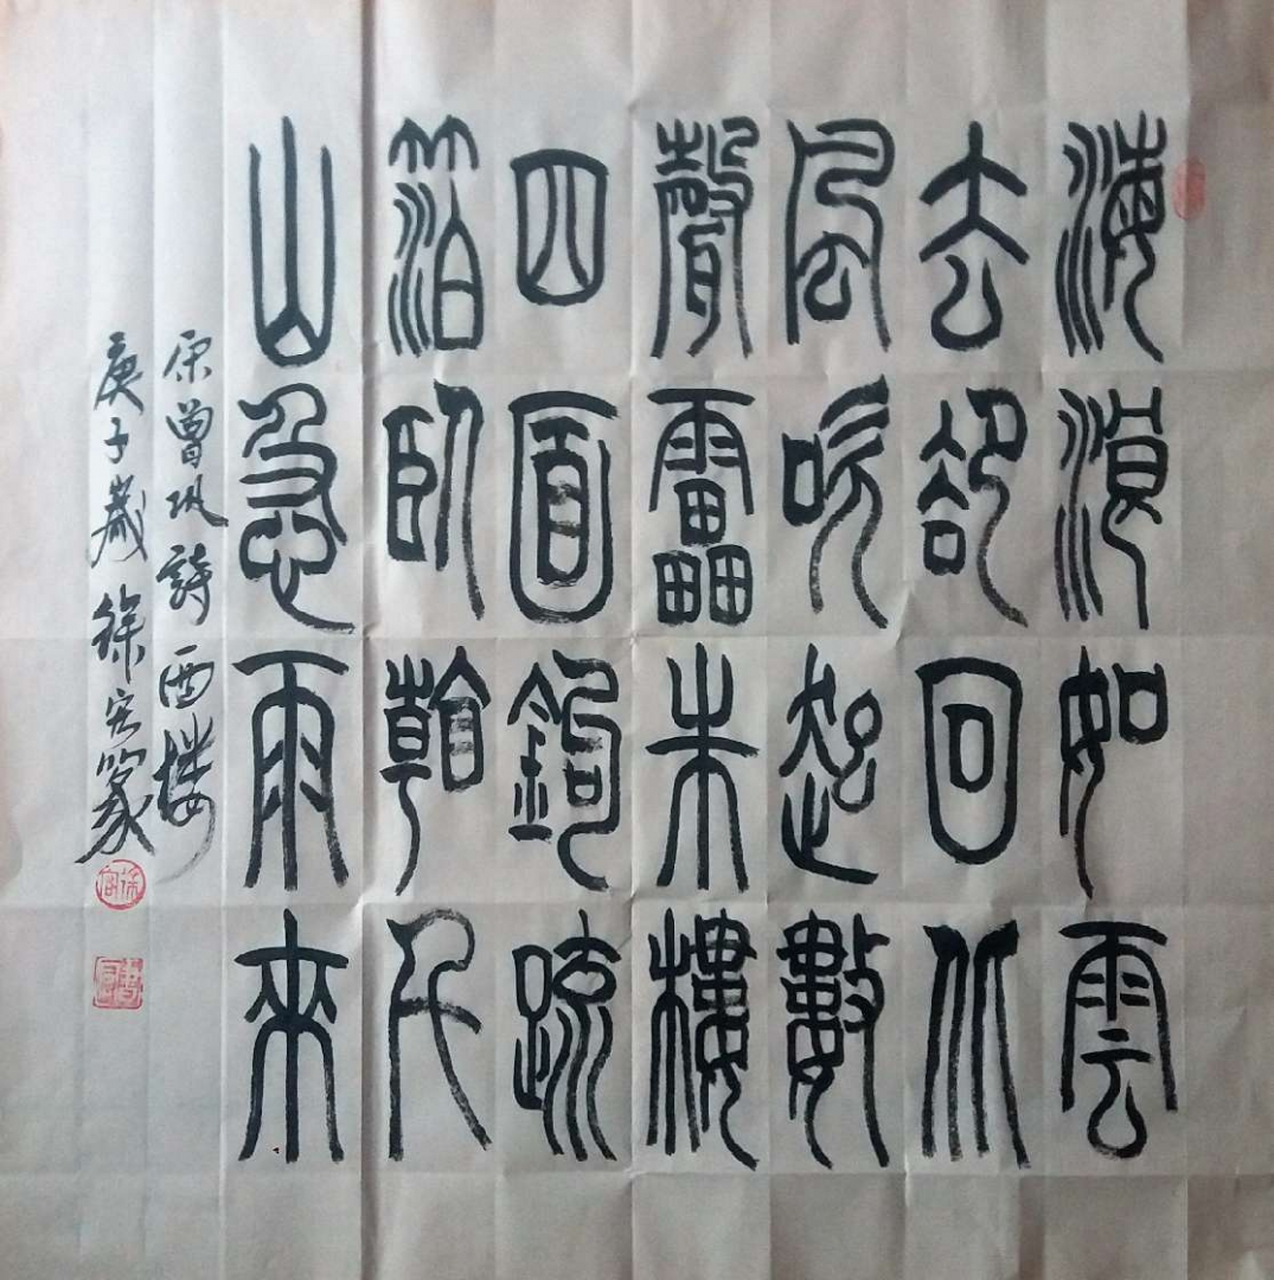 海浪如雲
去卻回北
風吹起數
聲靁朱樓
四面鉤疏
箔臥看千
山急雨來
宋曾巩詩西楼
庚子歲徐篆